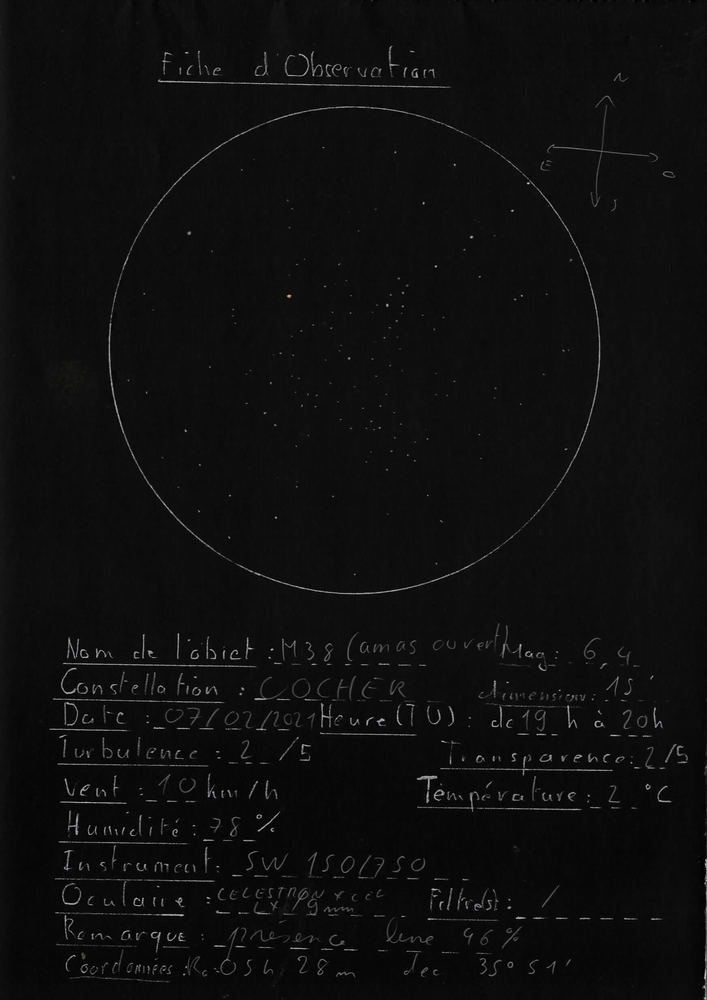 Fiche d'Observation
N
E
O
S
Nom de l'objet : M38 (amas ouvert) Mag : 6,4
Constellation : COCHER dimension : 15'
Date : 07/02/2021 Heure (TU) : de 19 h à 20h
Turbulence : 2 /5 Transparence : 2/5
Vent : 10 km/h Température : 2 °C
Humidité : 78 %
Instrument : SW 150/750
Oculaire : CELESTRON X CEL Filtre(s) : /
LX 9mm
Remarque : présence lune 46 %
Coordonnées : R. 05h 28m dec 35° 51'